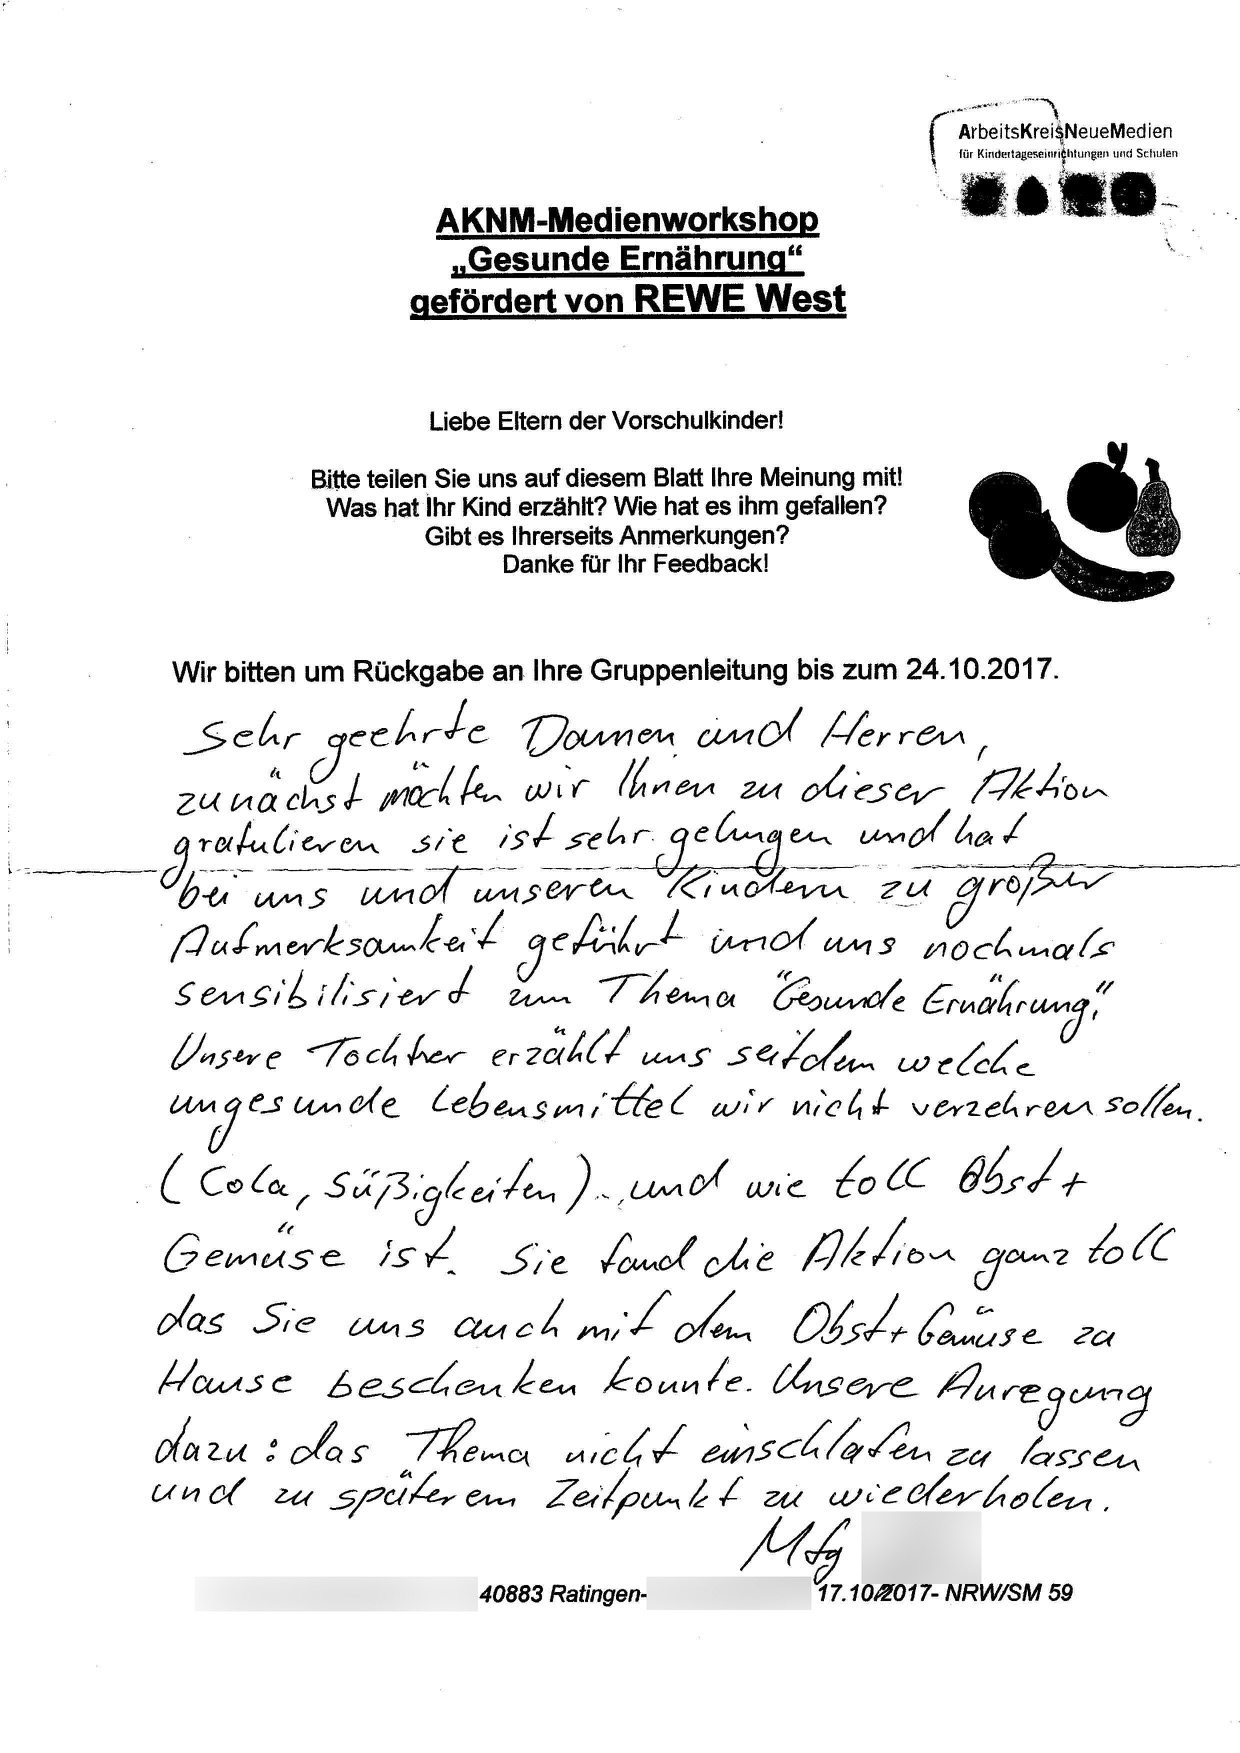 ArbeitsKreisNeueMedien
für Kindertageseinrichtungen und Schulen
AKNM-Medienworkshop
„Gesunde Ernährung“
gefördert von REWE West
Liebe Eltern der Vorschulkinder!
Bitte teilen Sie uns auf diesem Blatt Ihre Meinung mit!
Was hat Ihr Kind erzählt? Wie hat es ihm gefallen?
Gibt es Ihrerseits Anmerkungen?
Danke für Ihr Feedback!
Wir bitten um Rückgabe an Ihre Gruppenleitung bis zum 24.10.2017.
Sehr geehrte Damen und Herren,
zunächst möchten wir Ihnen zu dieser Aktion
gratulieren sie ist sehr gelungen und hat
bei uns und unseren Kindern zu großer
Aufmerksamkeit geführt und uns nochmals
sensibilisiert zum Thema "Gesunde Ernährung."
Unsere Tochter erzählt uns seitdem welche
ungesunde Lebensmittel wir nicht verzehren sollen.
(Cola, Süßigkeiten)... und wie toll Obst +
Gemüse ist. Sie fand die Aktion ganz toll
das Sie uns auch mit dem Obst + Gemüse zu
Hause beschenken konnte. Unsere Anregung
dazu: das Thema nicht einschlafen zu lassen
und zu späterem Zeitpunkt zu wiederholen.
Mfg
40883 Ratingen- 17.10.2017- NRW/SM 59